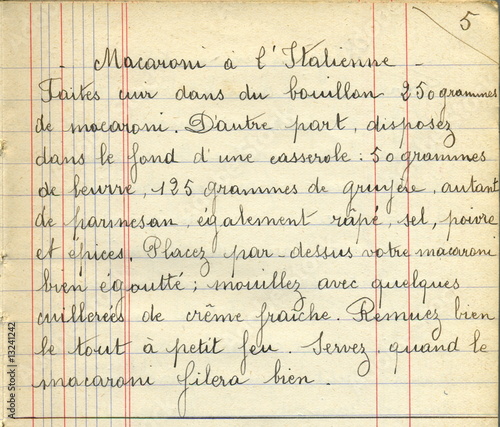 5
- Macaroni à l'Italienne -
Faites cuir dans du bouillon 250 grammes
de macaroni. D'autre part, disposez
dans le fond d'une casserole : 50 grammes
de beurre, 125 grammes de gruyère, autant
de parmesan, également râpé, sel, poivre
et épices. Placez par-dessus votre macaroni
bien égoutté ; mouillez avec quelques
cuillerées de crême fraîche. Remuez bien
le tout à petit feu. Servez, quand le
macaroni filera bien.
Adobe Stock | #13241242